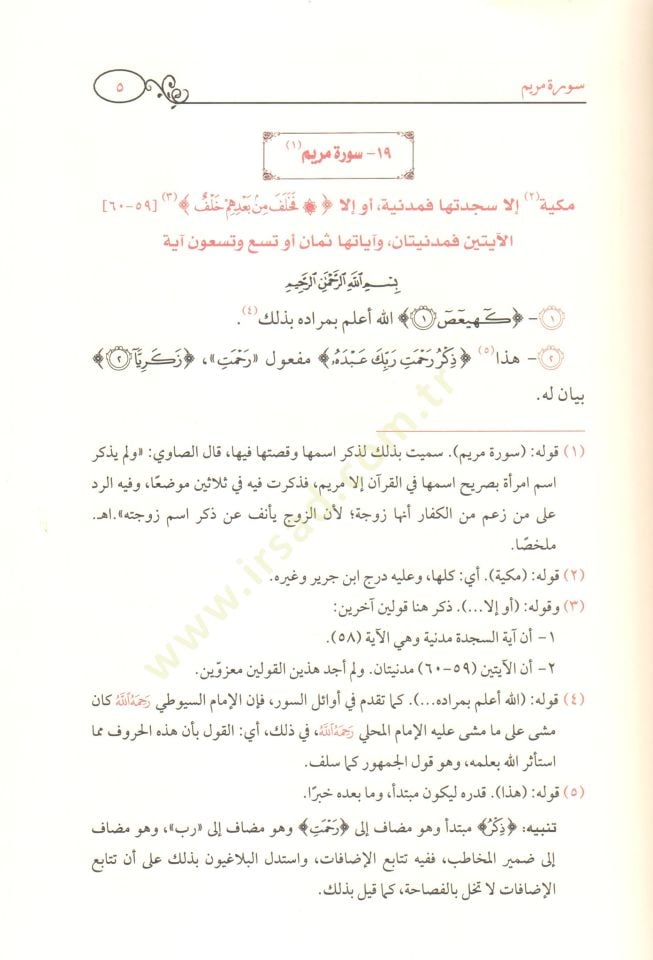 سورة مريم ٥
١٩- سورة مريم (١)
مكية(٢) إلا سجدتها فمدنية، أو إلا ﴿ ۞ فَخَلَفَ مِنْ بَعْدِهِمْ خَلْفٌ ﴾(٣) [٥٩-٦٠]
الآيتين فمدنيتان، وآياتها ثمان أو تسع وتسعون آية
بِسْمِ اللَّهِ الرَّحْمَٰنِ الرَّحِيمِ
١- ﴿كٓهيعٓصٓ ١﴾ الله أعلم بمراده بذلك(٤).
٢- هذا(٥) ﴿ذِكْرُ رَحْمَتِ رَبِّكَ عَبْدَهُۥ﴾ مفعول «رَحْمَتِ»، ﴿زَكَرِيَّآ ٢﴾
بيان له.
(١) قوله: (سورة مريم). سميت بذلك لذكر اسمها وقصتها فيها، قال الصاوي: «ولم يذكر
اسم امرأة بصريح اسمها في القرآن إلا مريم، فذكرت فيه في ثلاثين موضعًا، وفيه الرد
على من زعم من الكفار أنها زوجة؛ لأن الزوج يأنف عن ذكر اسم زوجته».اهـ.
ملخصًا.
(٢) قوله: (مكية). أي: كلها، وعليه درج ابن جرير وغيره.
(٣) وقوله: (أو إلا...). ذكر هنا قولين آخرين:
١- أن آية السجدة مدنية وهي الآية (٥٨).
٢- أن الآيتين (٥٩-٦٠) مدنيتان. ولم أجد هذين القولين معزوّين.
(٤) قوله: (الله أعلم بمراده...). كما تقدم في أوائل السور، فإن الإمام السيوطي رَحِمَهُ اللَّهُ كان
مشى على ما مشى عليه الإمام المحلي رَحِمَهُ اللَّهُ، في ذلك، أي: القول بأن هذه الحروف مما
استأثر الله بعلمه، وهو قول الجمهور كما سلف.
(٥) قوله: (هذا). قدره ليكون مبتدأ، وما بعده خبرًا.
تنبيه: ﴿ذِكْرُ﴾ مبتدأ وهو مضاف إلى ﴿رَحْمَتِ﴾ وهو مضاف إلى «رب»، وهو مضاف
إلى ضمير المخاطب، ففيه تتابع الإضافات، واستدل البلاغيون بذلك على أن تتابع
الإضافات لا تخل بالفصاحة، كما قيل بذلك.
www.irsad.com.tr